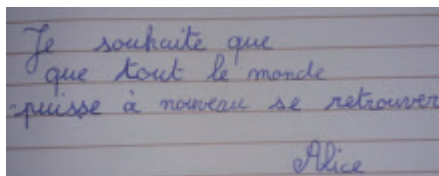 Je souhaite que
que tout le monde
puisse à nouveau se retrouver
Alice